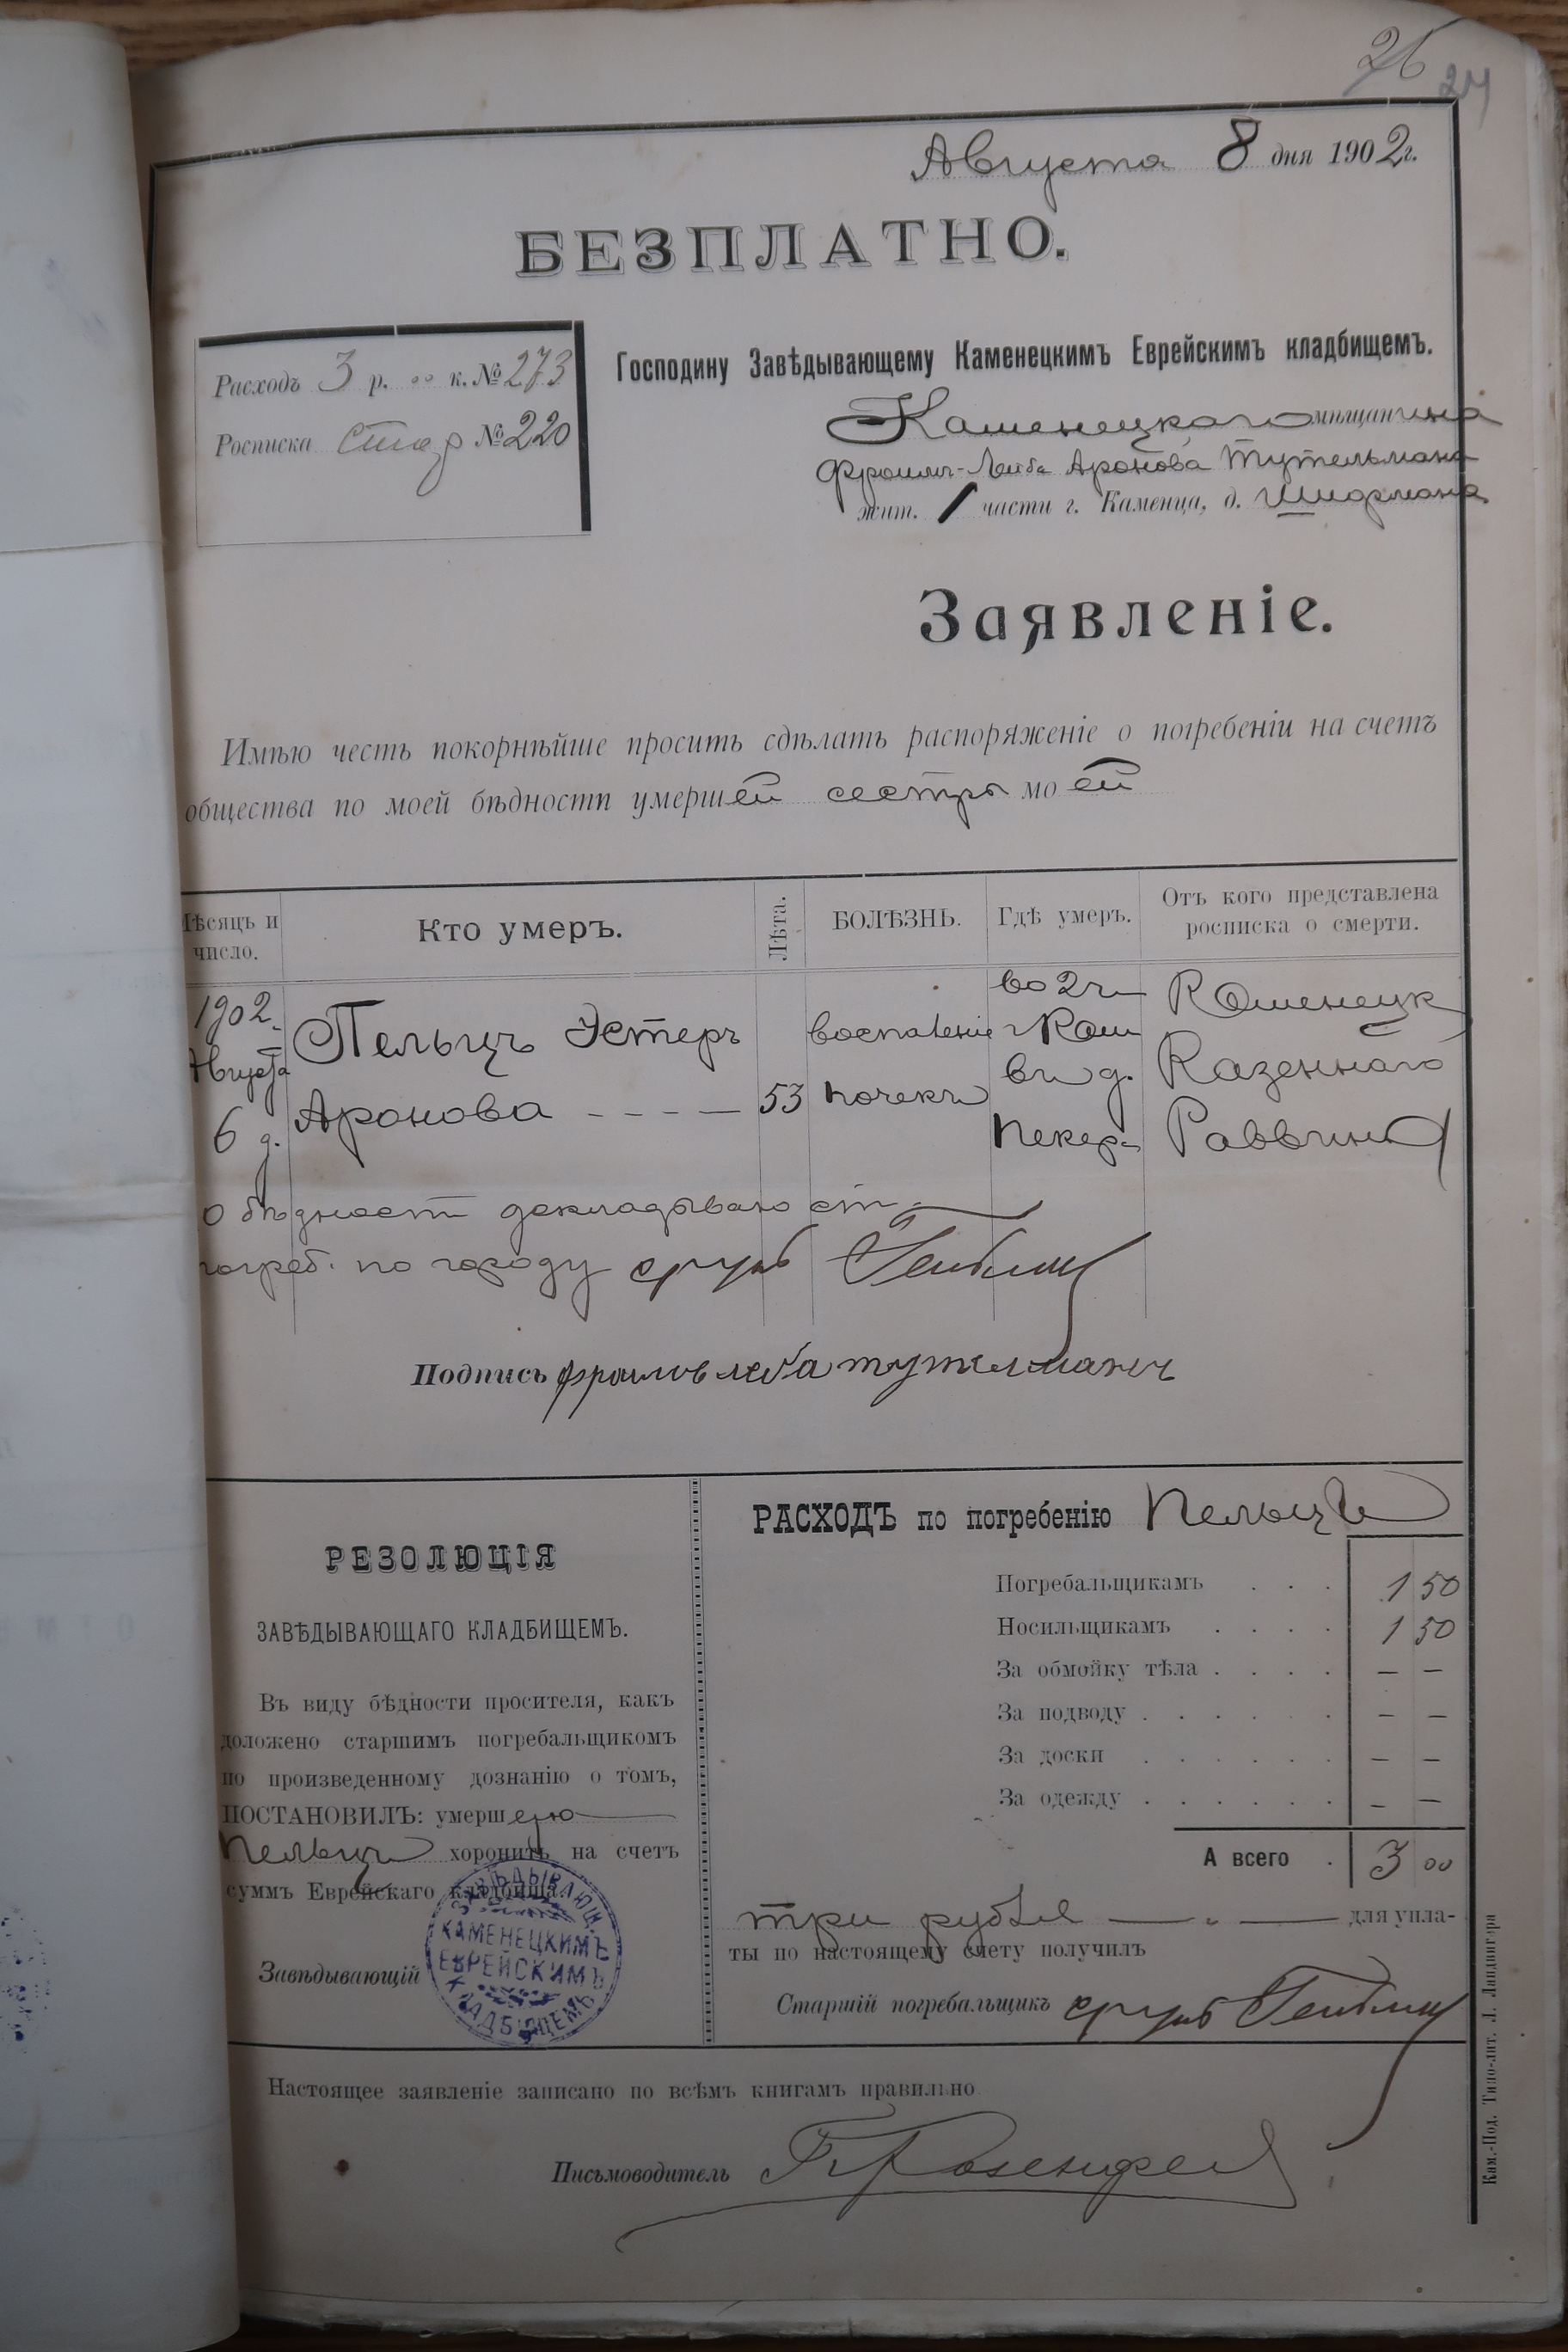 26
24
Августа 8 дня 1902 г.
БЕЗПЛАТНО.
Расходъ 3 р. 00 к. № 273
Росписка стар № 220
Господину Завѣдывающему Каменецкимъ Еврейскимъ кладбищемъ.
Каменецкаго мѣщанина
Фроимъ-Лейба Аронова Тутельмана
жит. 1 части г. Каменца, д.
Заявленіе.
Имѣю честь покорнѣйше просить сдѣлать распоряженіе о погребеніи на счетъ
общества по моей бѣдности умершей сестры моей
Мѣсяцъ и число.
Кто умеръ.
Лѣта.
БОЛѢЗНЬ.
Гдѣ умеръ.
Отъ кого представлена росписка о смерти.
1902
Августа
6 д.
Пельцъ Эстеръ
Аронова
53
воспаленіе
почекъ
во 2 ч
г Кам
въ д.
Пекер
Каменецк
Казеннаго
Раввина
о бѣдност докладываю ст.
погреб. по городу
Подпись фроимъ леба тутелманъ
РЕЗОЛЮЦІЯ
ЗАВѢДЫВАЮЩАГО КЛАДБИЩЕМЪ.
Въ виду бѣдности просителя, какъ
доложено старшимъ погребальщикомъ
по произведенному дознанію о томъ,
ПОСТАНОВИЛЪ: умершую
Пельцъ хоронить на счетъ
суммъ Еврейскаго кладбища.
Завѣдывающій
ЗАВѢДЫВАЮЩ.
КАМЕНЕЦКИМЪ
ЕВРЕЙСКИМЪ
КЛАДБИЩЕМЪ
РАСХОДЪ по погребенію Пельцъ
Погребальщикамъ . . . 1 50
Носильщикамъ . . . . 1 50
За обмойку тѣла . . . . — —
За подводу . . . . . . — —
За доски . . . . . . — —
За одежду . . . . . . — —
А всего . 3 00
три рубля — „ — для упла-
ты по настоящему счету получилъ
Старшій погребальщикъ
Настоящее заявленіе записано по всѣмъ книгамъ правильно
Письмоводитель
Кам.-Под. Типо-лит. Л. Ландвигера